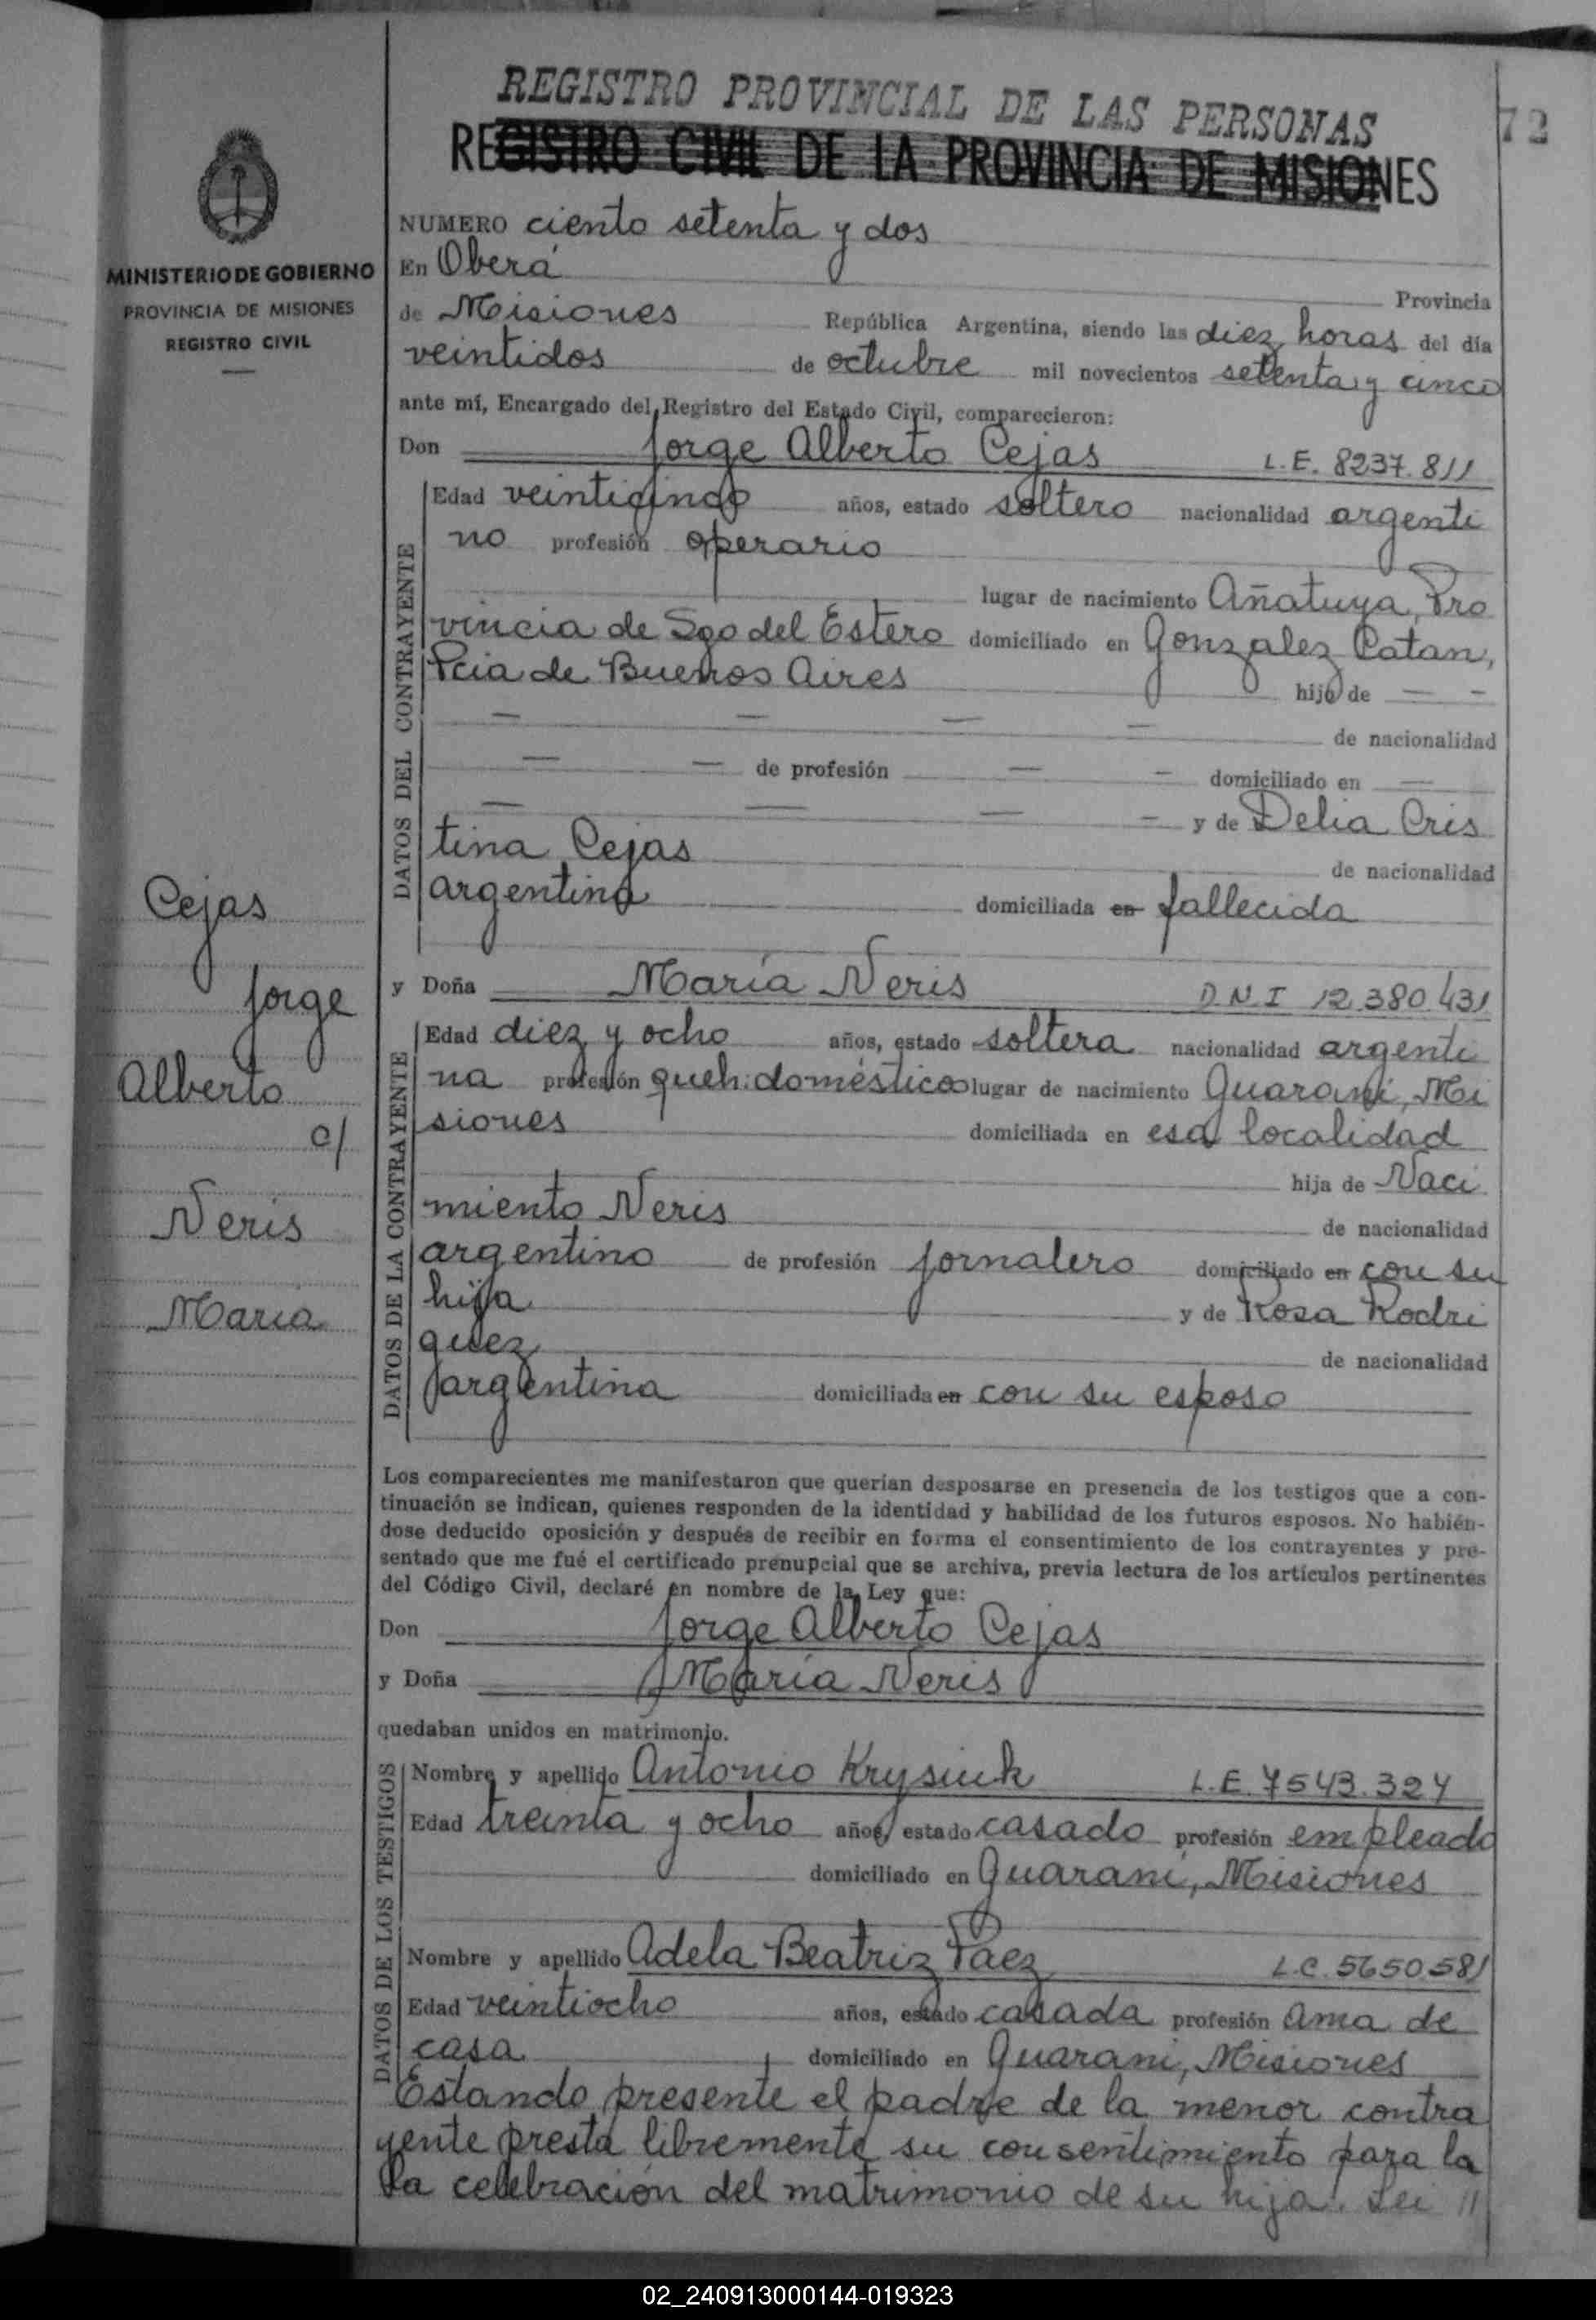 REGISTRO PROVINCIAL DE LAS PERSONAS
72
REGISTRO CIVIL DE LA PROVINCIA DE MISIONES
MINISTERIO DE GOBIERNO
PROVINCIA DE MISIONES
REGISTRO CIVIL
Cejas
Jorge
Alberto
c/
Neris
María
NUMERO ciento setenta y dos
En Oberá Provincia
de Misiones República Argentina, siendo las diez horas del día
veintidos de octubre mil novecientos setenta y cinco
ante mí, Encargado del Registro del Estado Civil, comparecieron:
Don Jorge Alberto Cejas L.E. 8237.811
DATOS DEL CONTRAYENTE
Edad veinticinco años, estado soltero nacionalidad argenti
no profesión operario
lugar de nacimiento Añatuya, Pro
vincia de Sgo del Estero domiciliado en Gonzalez Catan,
Pcia de Buenos Aires hijo de — —
— — — — de nacionalidad
— — de profesión — — domiciliado en —
— — — — y de Delia Cris
tina Cejas de nacionalidad
argentina domiciliada en fallecida
y Doña María Neris D.N.I 12.380.431
DATOS DE LA CONTRAYENTE
Edad diez y ocho años, estado soltera nacionalidad argenti
na profesión queh. domésticos lugar de nacimiento Guaraní, Mi
siones domiciliada en esa localidad
hija de Naci
miento Neris de nacionalidad
argentino de profesión jornalero domiciliado en con su
hija y de Rosa Rodri
guez de nacionalidad
argentina domiciliada en con su esposo
Los comparecientes me manifestaron que querían desposarse en presencia de los testigos que a con-
tinuación se indican, quienes responden de la identidad y habilidad de los futuros esposos. No habién-
dose deducido oposición y después de recibir en forma el consentimiento de los contrayentes y pre-
sentado que me fué el certificado prenupcial que se archiva, previa lectura de los artículos pertinentes
del Código Civil, declaré en nombre de la Ley que:
Don Jorge Alberto Cejas
y Doña María Neris
quedaban unidos en matrimonio.
DATOS DE LOS TESTIGOS
Nombre y apellido Antonio Krysiuk L.E. 7543.324
Edad treinta y ocho años, estado casado profesión empleado
domiciliado en Guaraní, Misiones
Nombre y apellido Adela Beatriz Paez L.C. 5650.581
Edad veintiocho años, estado casada profesión ama de
casa domiciliado en Guaraní, Misiones
Estando presente el padre de la menor contra
yente presta libremente su consentimiento para la
la celebración del matrimonio de su hija. Lei //
02_240913000144-019323